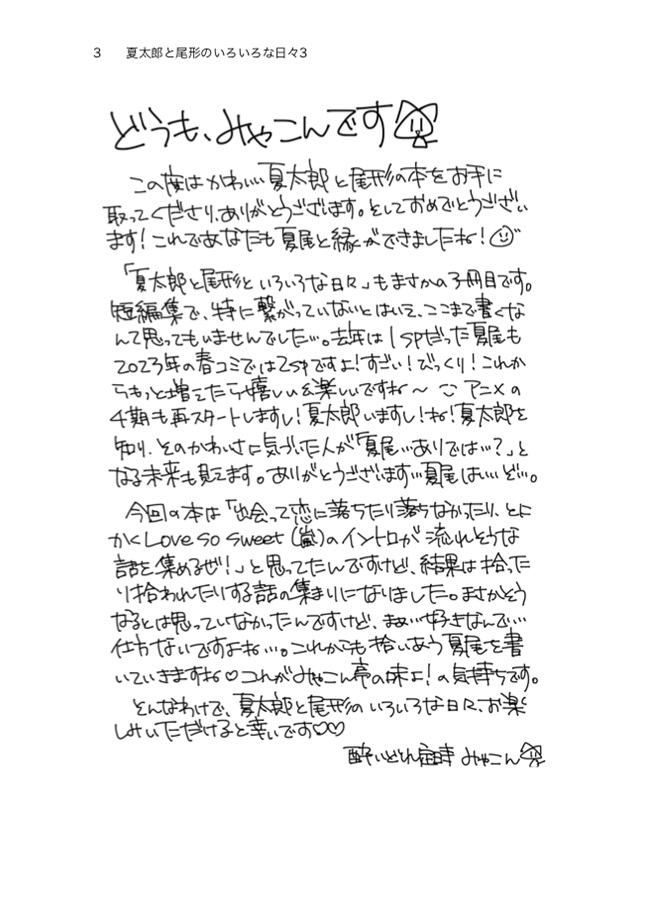 3 夏太郎と尾形のいろいろな日々3
どうも、みやこんです
この度はかわいい夏太郎と尾形の本をお手に
取ってくださり、ありがとうございます。そしておめでとうござい
ます!これであなたも夏尾と縁ができましたね!
「夏太郎と尾形といろいろな日々」もまさかの3冊目です。
短編集で、特に繋がっていないとはいえ、ここまで書くな
んて思ってもいませんでした…。去年は1spだった夏尾も
2023年の春コミでは2spですよ!すごい!びっくり!これか
らもっと増えたら嬉しい&楽しいですね〜 アニメの
4期も再スタートしますし!夏太郎いますし!ね!夏太郎を
知り、そのかわいさに気づいた人が「夏尾…ありでは…?」と
なる未来も見えます。ありがとうございます…夏尾はいいぞ…。
今回の本は「出会って恋に落ちたり落ちなかったり、とに
かくLove so sweet(嵐)のイントロが流れそうな
話を集めるぜ!」と思ってたんですけど、結果は拾った
り拾われたりする話の集まりになりました。まさかそう
なるとは思っていなかったんですけど、まぁ…好きなんで…
仕方ないですよね…。これからも拾いあう夏尾を書
いていきますね♡これがみやこん亭の味よ!の気持ちです。
そんなわけで、夏太郎と尾形のいろいろな日々、お楽
しみいただけると幸いです♡♡
酔いどれ みやこん